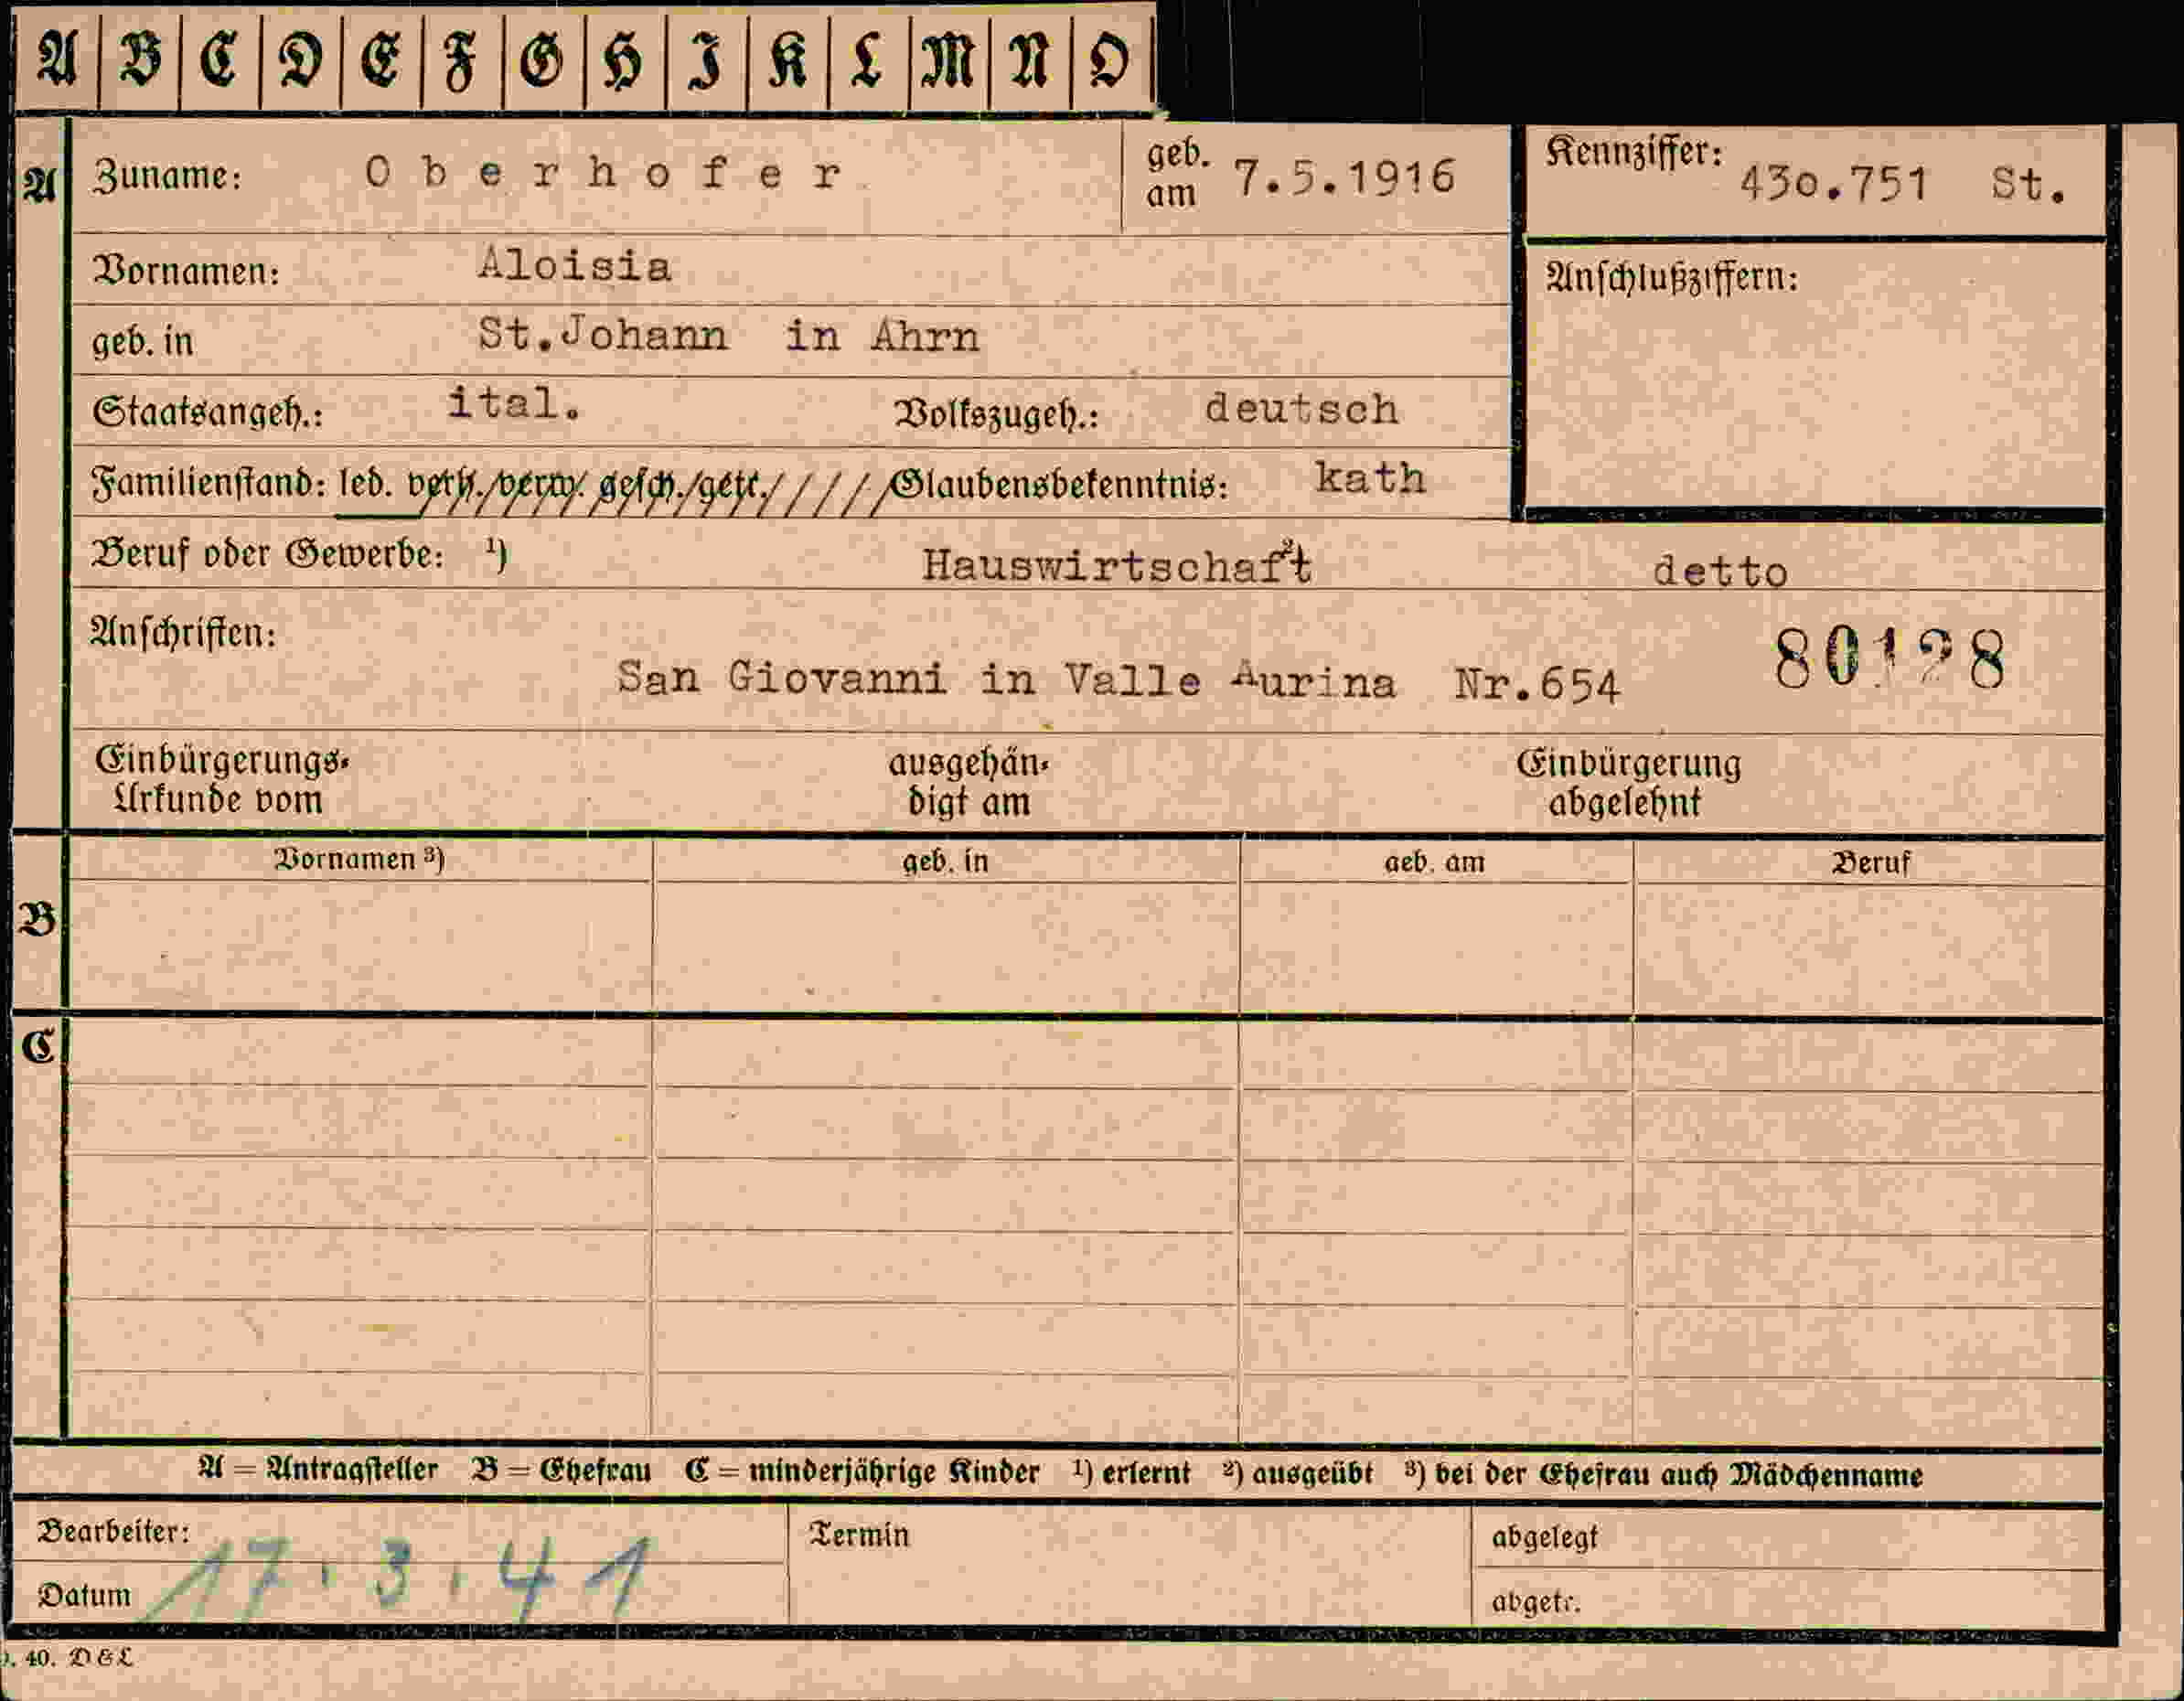 A B C D E F G H I K L M N O
A Zuname: Oberhofer geb. am 7.5.1916 Kennziffer: 430.751 St.
Vornamen: Aloisia Anschlußziffern:
geb. in St.Johann in Ahrn
Staatsangeh.: ital. Volkszugeh.: deutsch
Familienstand: led. verh./verw. gesch./getr./////Glaubensbekenntnis: kath
Beruf oder Gewerbe: ¹) Hauswirtschaft ²) detto
Anschriften:
San Giovanni in Valle Aurina Nr.654 80128
Einbürgerungs- ausgehän- Einbürgerung
Urkunde vom digt am abgelehnt
Vornamen ³) geb. in geb. am Beruf
B
C
A = Antragsteller B = Ehefrau C = minderjährige Kinder ¹) erlernt ²) ausgeübt ³) bei der Ehefrau auch Mädchenname
Bearbeiter: Termin abgelegt
17.3.41
Datum abgetr.
40. D & L